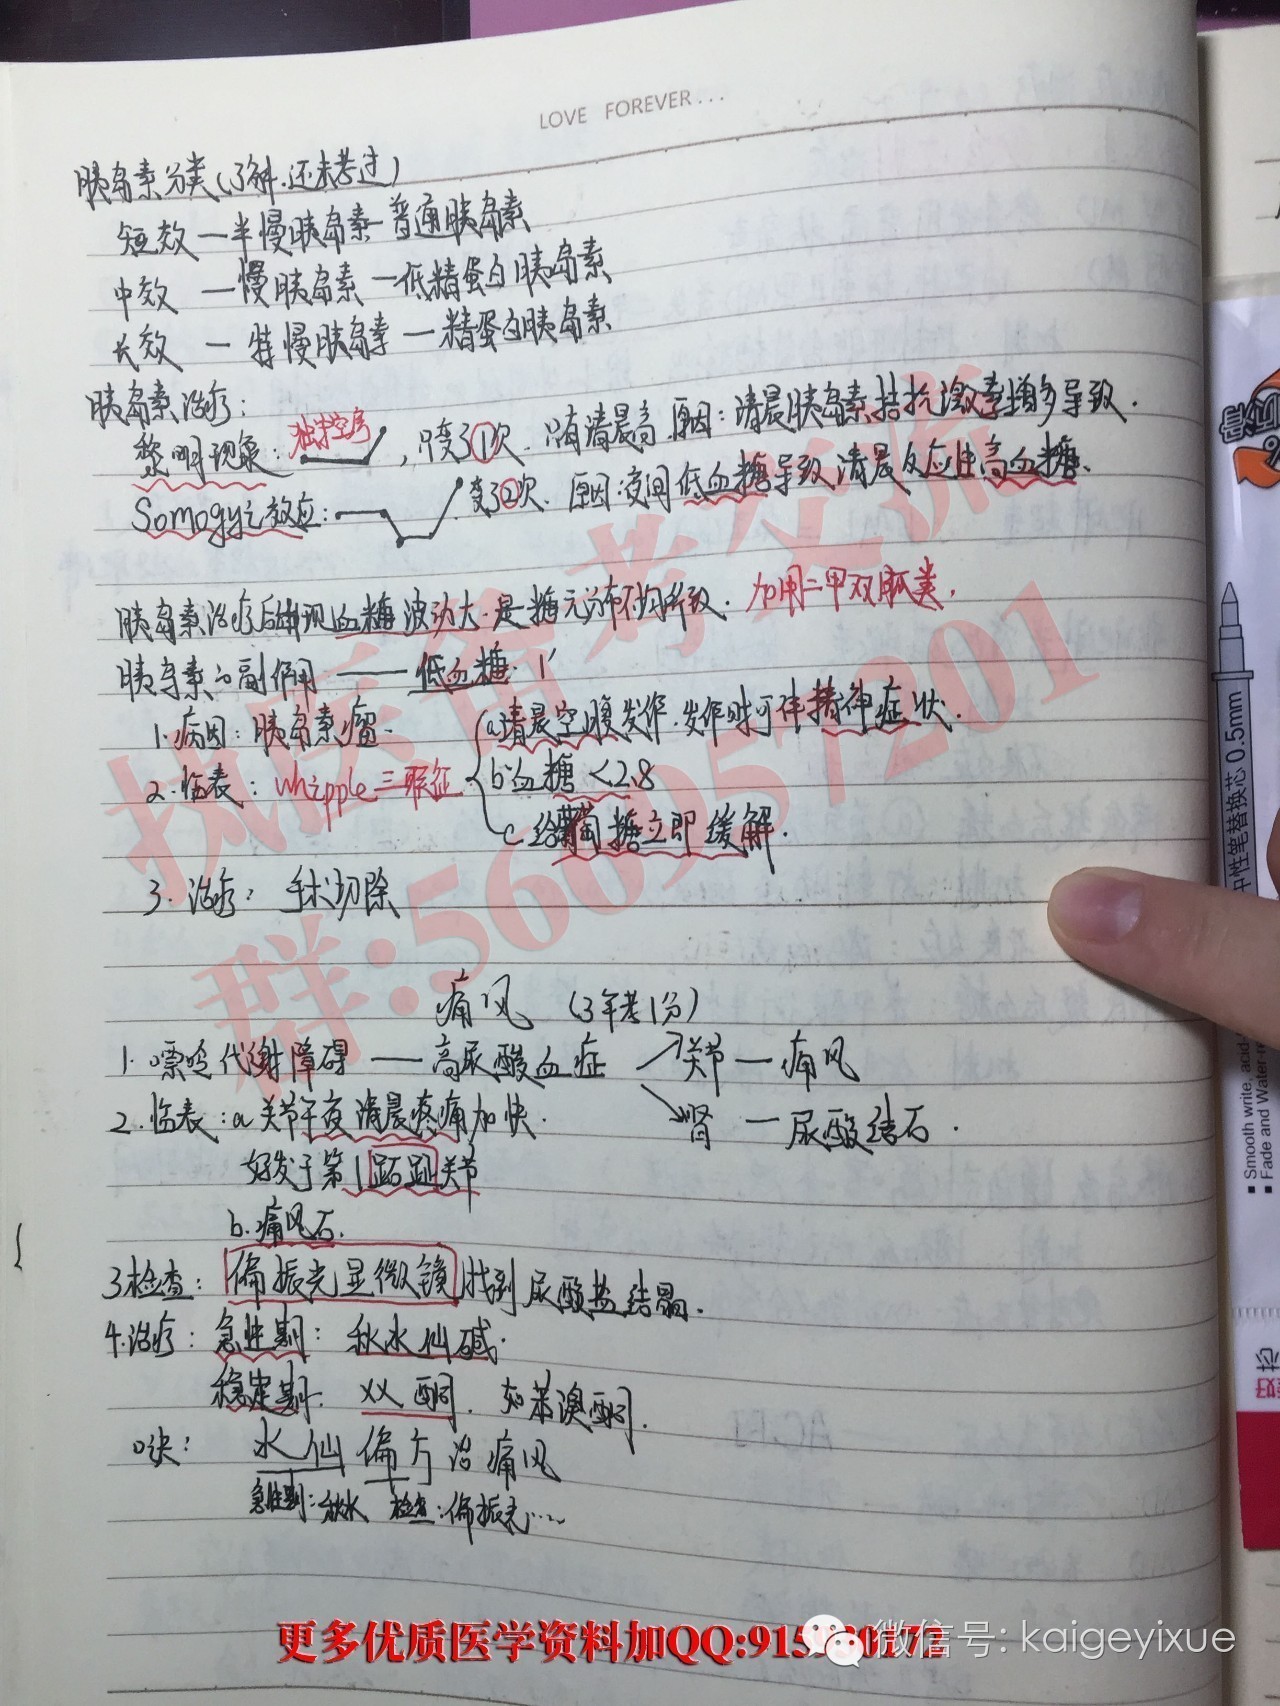 LOVE FOREVER...
胰岛素分类(了解.还未考过)
短效—半慢胰岛素—普通胰岛素
中效 —慢胰岛素—低精蛋白胰岛素
长效 — 特慢胰岛素—精蛋白胰岛素
胰岛素治疗:
黎明现象: 独守空房 ,只变了①次.只有清晨高.原因:清晨胰岛素拮抗激素增多导致.
Somogyi效应: 变了②次.原因:夜间低血糖导致清晨反应性高血糖.
胰岛素治疗后出现血糖波动大.是糖元分布不均所致. 加用二甲双胍类.
胰岛素的副作用——低血糖.1'
1.病因:胰岛素瘤.
2.临表: whipple三联征
a.清晨空腹发作.发作时可伴精神症状.
b.血糖<2.8
c.给葡萄糖立即缓解.
3.治疗: 手术切除
痛风 (3年考1分)
1.嘌呤代谢障碍——高尿酸血症 关节—痛风
肾 —尿酸结石.
2.临表:a关节午夜清晨疼痛加快.
好发于第1跖趾关节
b.痛风石.
3检查: 偏振光显微镜找到尿酸盐结晶.
4.治疗:急性期: 秋水仙碱.
稳定期. XX酮. 如苯溴酮.
口诀: 水仙偏方治痛风
急性期:秋水 检查:偏振光……
执医备考交流
群:566957201
更多优质医学资料加QQ:915
微信号: kaigeyixue
中性笔替换芯 0.5mm